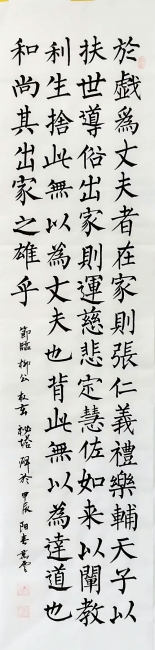 於戲為丈夫者在家則張仁義禮樂輔天子以
扶世導俗出家則運慈悲定慧佐如来以闡教
利生捨此無以為丈夫也背此無以為達道也
和尚其出家之雄乎
節臨柳公权玄秘塔碑於甲辰阳春